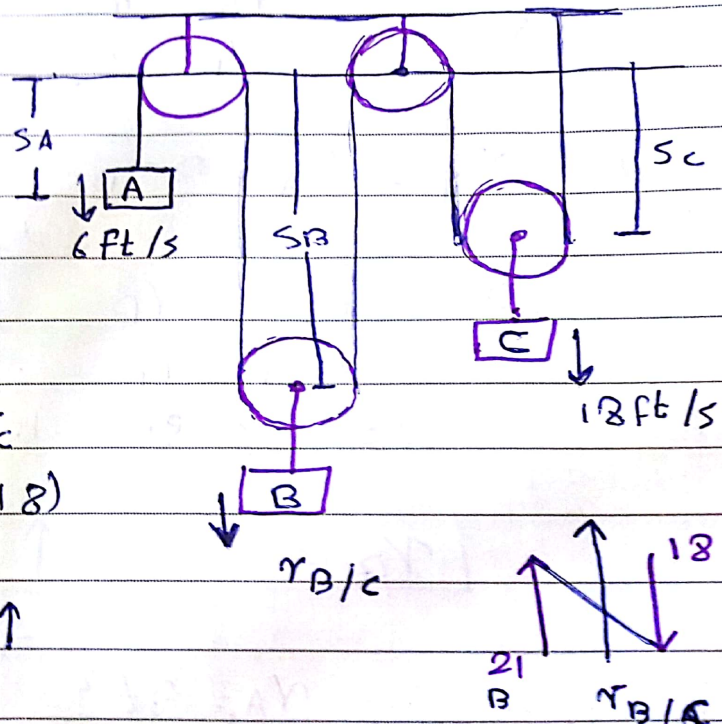 SA
A
6 ft/s
SB
Sc
C
18 ft/s
18)
B
γB/C
18
21
B
γB/C